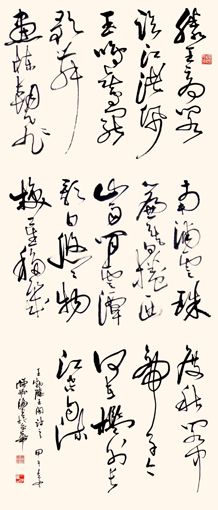 滕王高閣
臨江渚佩
玉鳴鸞罷
歌舞
畫棟朝飛
南浦雲珠
簾暮捲西
山雨閒雲潭
影日悠悠物
換星移幾
度秋閣中
帝子今
何在檻外長
江空自流
王勃滕王閣詩